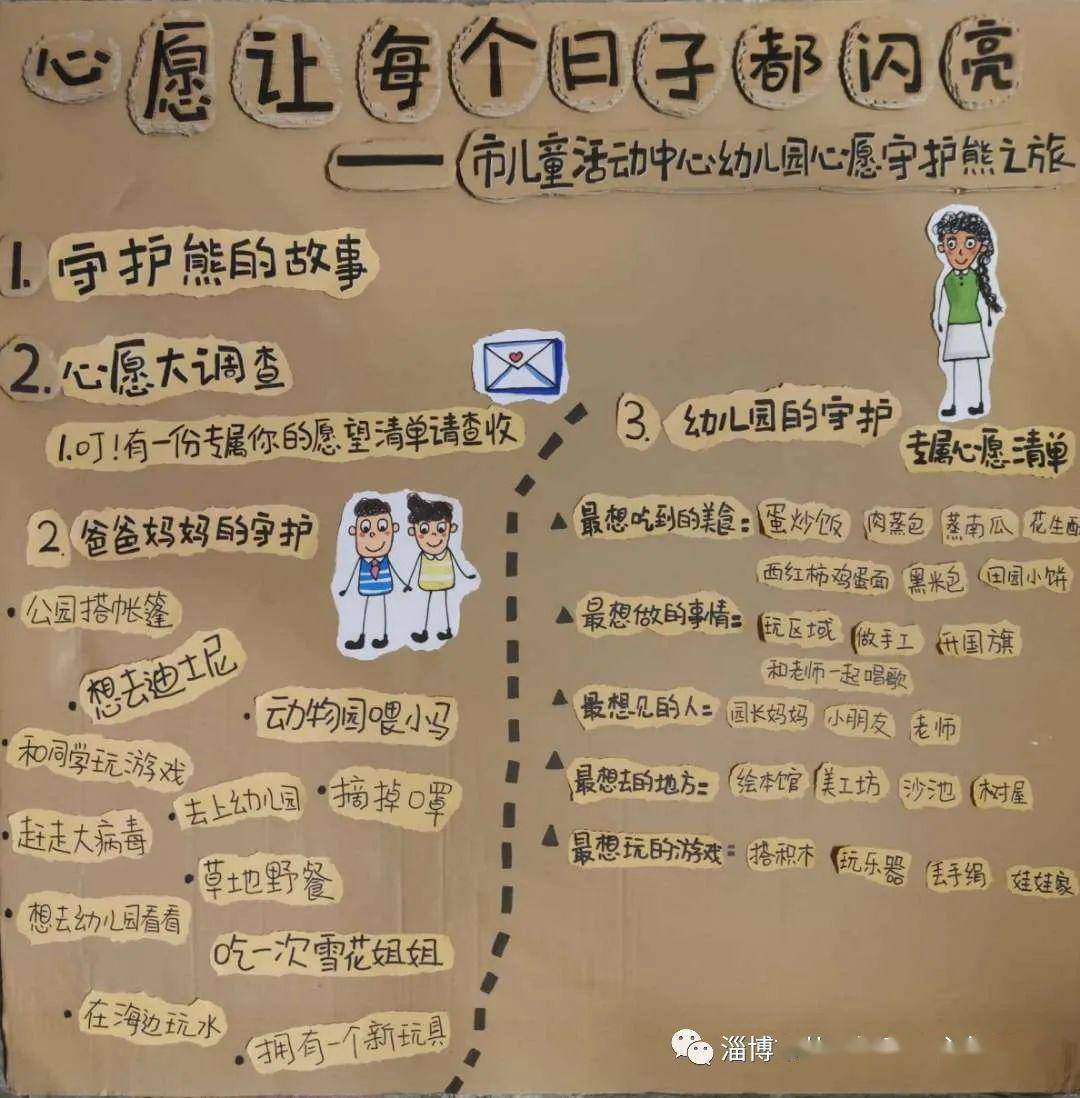 心愿让每个日子都闪亮
——市儿童活动中心幼儿园心愿守护熊之旅
1.守护熊的故事
2.心愿大调查
1.叮!有一份专属你的愿望清单请查收
2.爸爸妈妈的守护
·公园搭帐篷
·想去迪士尼
·动物园喂小马
·和同学玩游戏
·去上幼儿园
·摘掉口罩
·赶走大病毒
·草地野餐
·想去幼儿园看看
吃一次雪花姐姐
·在海边玩水
·拥有一个新玩具
3.幼儿园的守护
专属心愿清单
▲最想吃到的美食: 蛋炒饭 肉蒸包 蒸南瓜 花生酥
西红柿鸡蛋面 黑米包 田园小饼
▲最想做的事情: 玩区域 做手工 升国旗
和老师一起唱歌
▲最想见的人: 园长妈妈 小朋友 老师
▲最想去的地方: 绘本馆 美工坊 沙池 树屋
▲最想玩的游戏: 搭积木 玩乐器 丢手绢 娃娃家
淄博